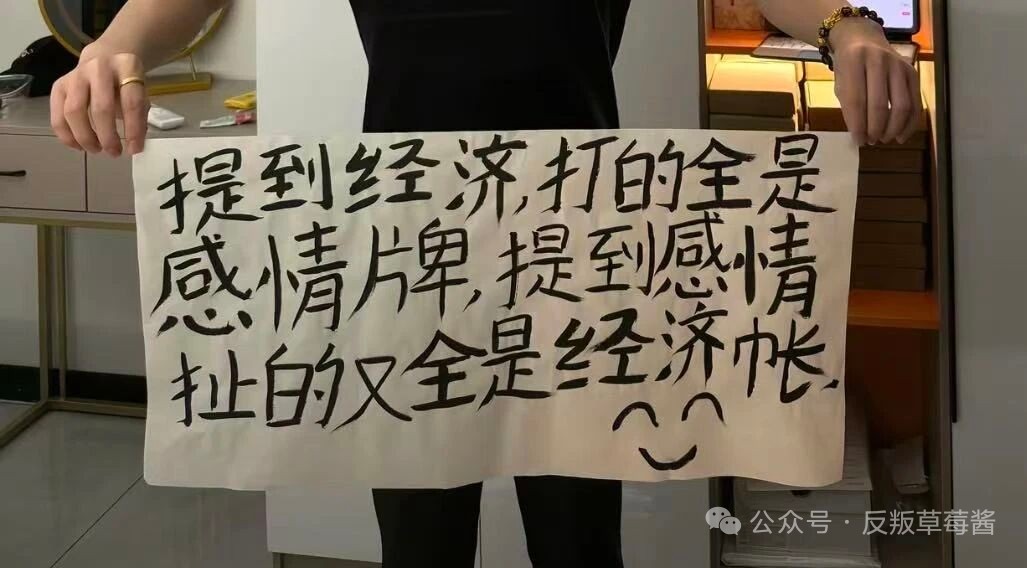 提到经济,打的全是
感情牌,提到感情
扯的又全是经济帐.
公众号·反叛草莓酱